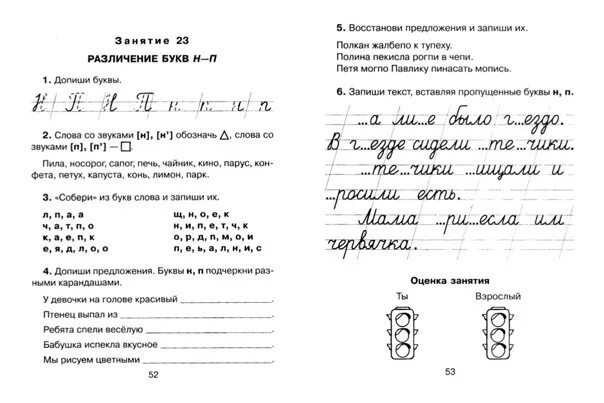 Занятие 23
РАЗЛИЧЕНИЕ БУКВ Н—П
1. Допиши буквы.
Н П Н П н п н п
2. Слова со звуками [н], [н'] обозначь △, слова со
звуками [п], [п'] — □.
Пила, носорог, сапог, печь, чайник, кино, парус, кон-
фета, петух, капуста, конь, лимон, парк.
3. «Собери» из букв слова и запиши их.
л, п, а, а щ, н, о, е, к
ч, а, т, п, о н, и, п, е, т, ч, к
к, а, е, п, к о, р, д, п, м, о, и
е, я, д, л, о, о п, е, ь, а, л, н, и, с
4. Допиши предложения. Буквы н, п подчеркни раз-
ными карандашами.
У девочки на голове красивый
Птенец выпал из
Ребята спели весёлую
Бабушка испекла вкусное
Мы рисуем цветными
52
5. Восстанови предложения и запиши их.
Полкан жалбепо к тупеху.
Полина пекисла рогпи в чепи.
Петя могпо Павлику пинасать мопись.
6. Запиши текст, вставляя пропущенные буквы н, п.
...а ли...е было г...ездо.
В г...езде сидели ...те...чики.
...те...чики ...ищали и
...росили есть.
Мама ...ри...есла им
червячка.
Оценка занятия
Ты Взрослый
53